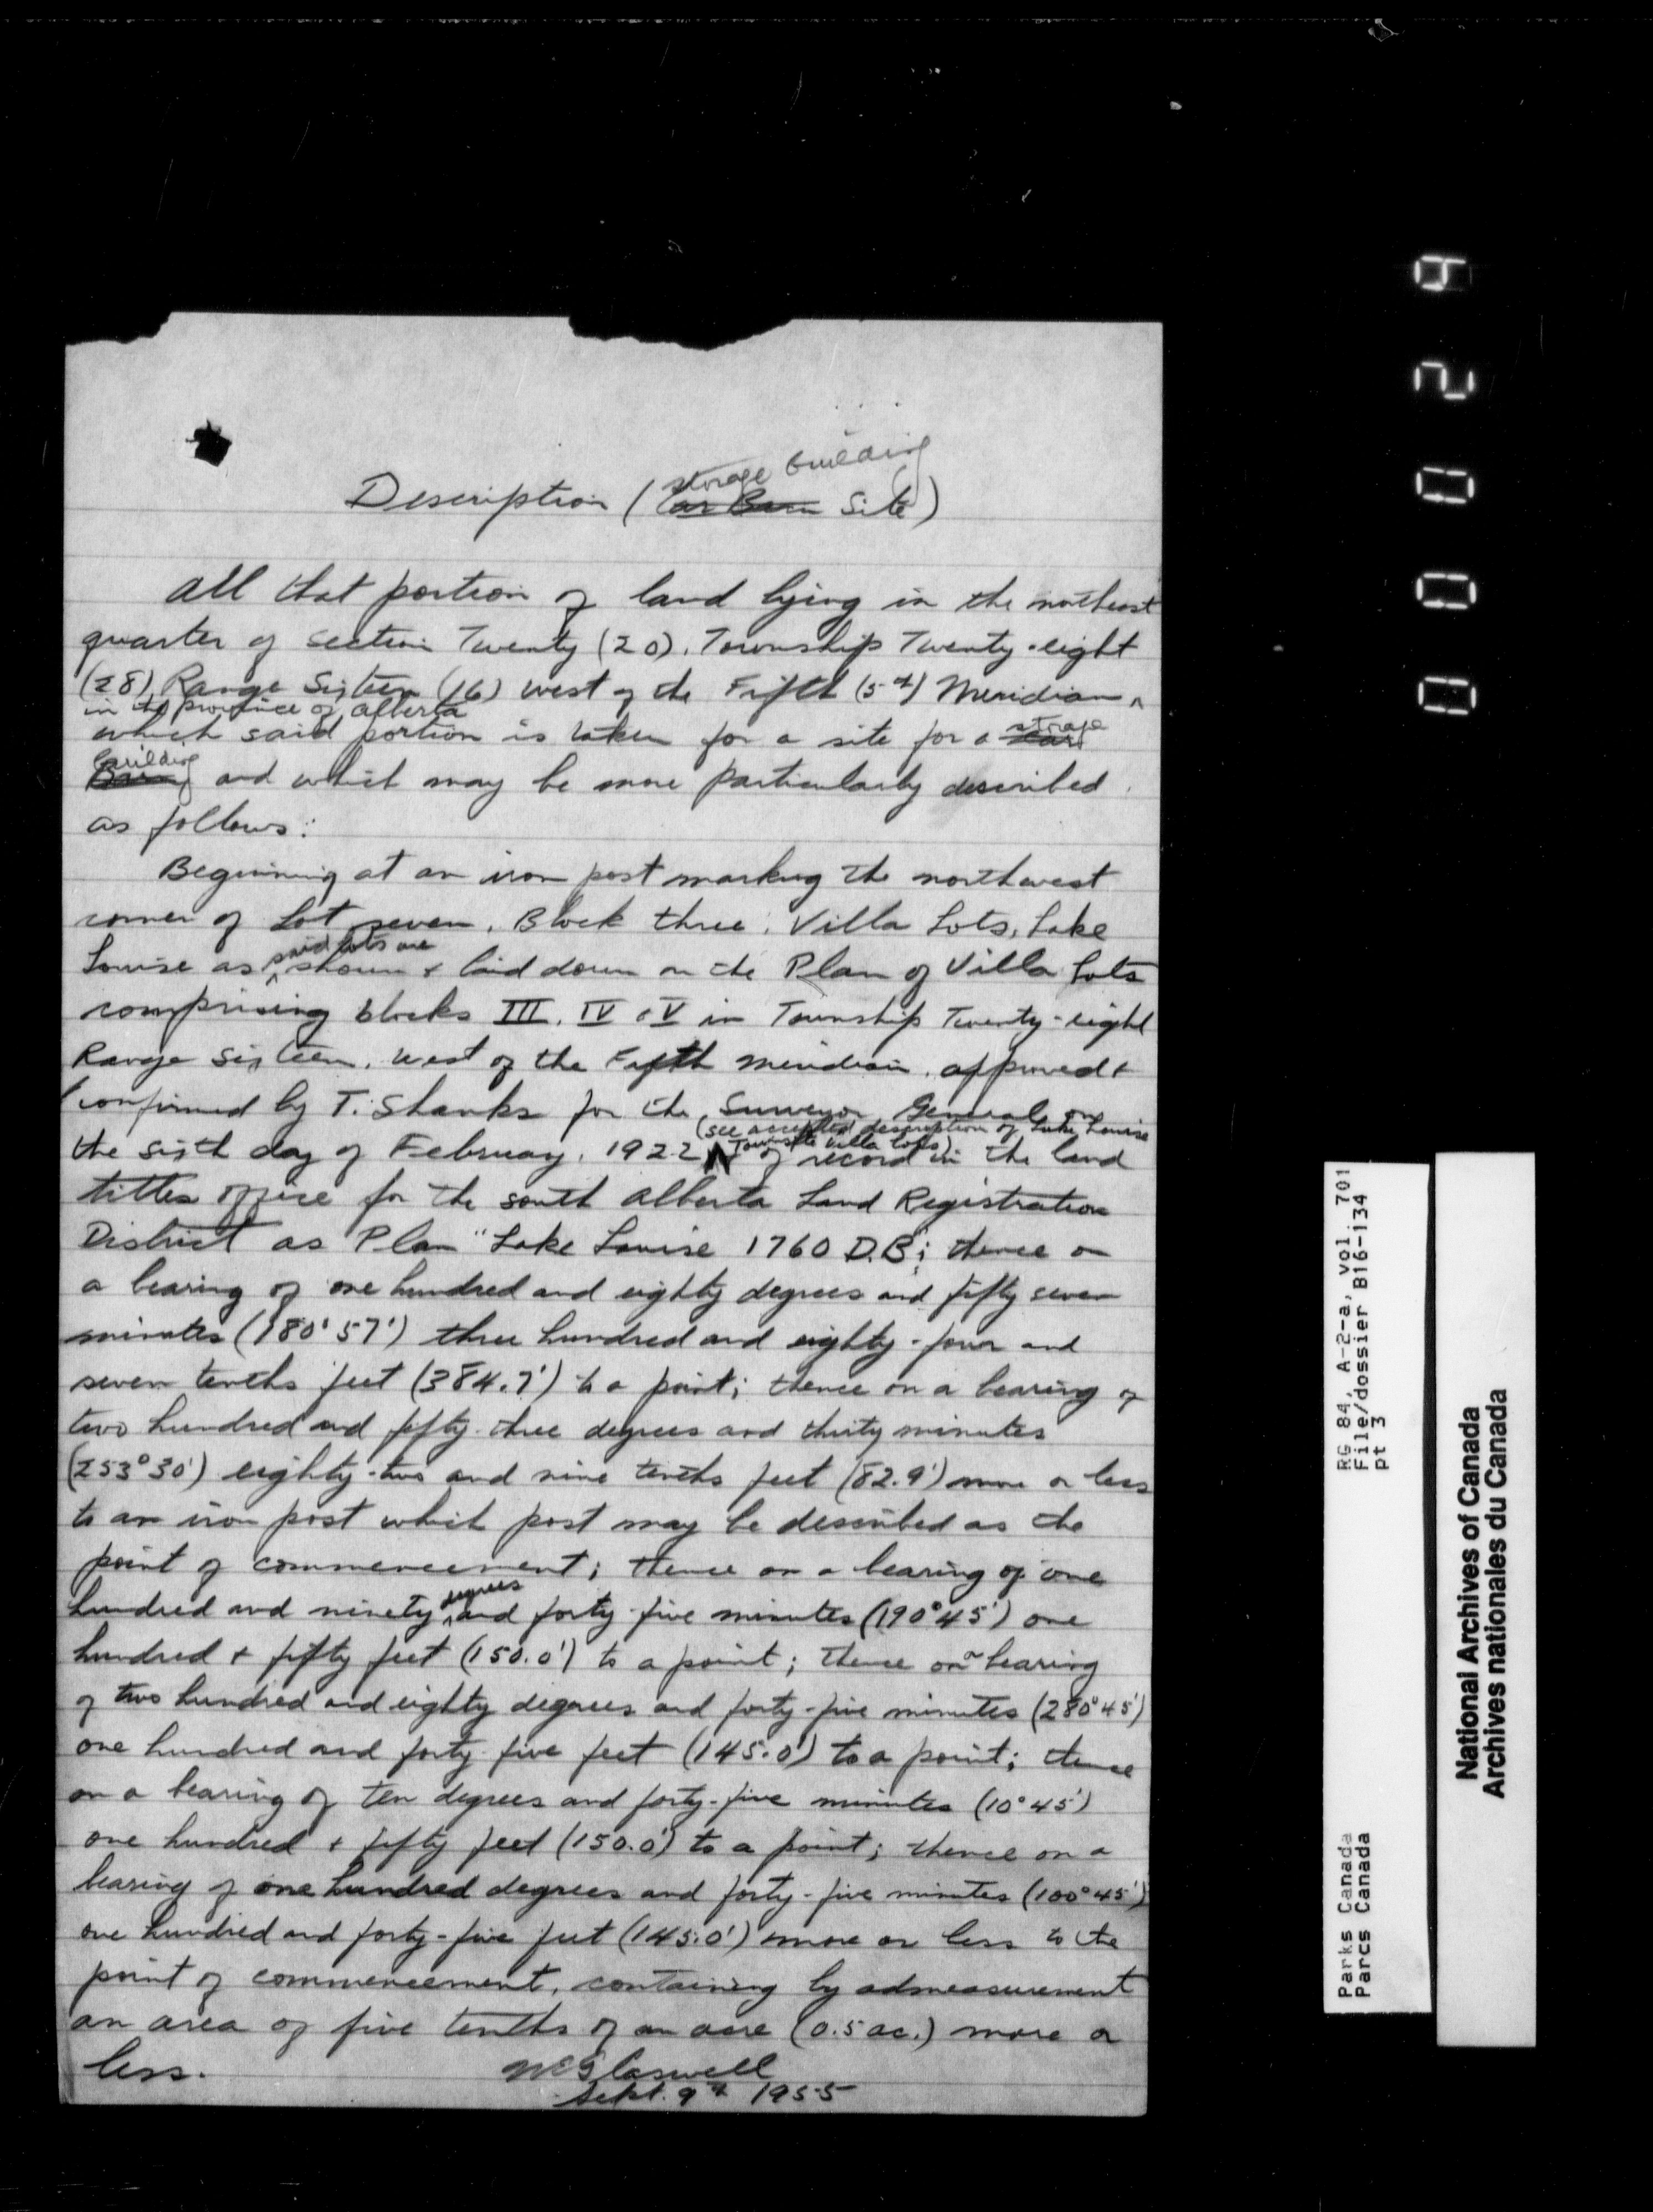 Description (Car Barn storage building Site)
All that portion of land lying in the northeast
quarter of section Twenty (20), Township Twenty-eight
(28), Range Sixteen (16) west of the Fifth (5th) Meridian
in the province of Alberta
which said portion is taken for a site for a Car storage
Barn building and which may be more particularly described
as follows:
Beginning at an iron post marking the northwest
corner of Lot seven, Block three, Villa Lots, Lake
Louise as said lots are shown & laid down on the Plan of Villa Lots
comprising blocks III, IV & V in Township Twenty-eight
Range Sixteen, West of the Fifth meridian, approved &
confirmed by T. Shanks for the Surveyor General on
(see accepted description of Lake Louise
Townsite Villa Lots)
the sixth day of February, 1922 of record in the land
titles office for the south Alberta Land Registration
District as Plan "Lake Louise 1760 D.B; thence on
a bearing of one hundred and eighty degrees and fifty seven
minutes (180' 57') three hundred and eighty-four and
seven tenths feet (384.7') to a point; thence on a bearing of
two hundred and fifty-three degrees and thirty minutes
(253°30') eighty-two and nine tenths feet (82.9') more or less
to an iron post which post may be described as the
point of commencement; thence on a bearing of one
hundred and ninety degrees and forty-five minutes (190°45') one
hundred & fifty feet (150.0') to a point; thence on a bearing
of two hundred and eighty degrees and forty-five minutes (280°45')
one hundred and forty-five feet (145.0') to a point; thence
on a bearing of ten degrees and forty-five minutes (10°45')
one hundred & fifty feet (150.0') to a point; thence on a
bearing of one hundred degrees and forty-five minutes (100°45')
one hundred and forty-five feet (145.0') more or less to the
point of commencement, containing by admeasurement
an area of five tenths of an acre (0.5 ac.) more or
less.
Sept. 9th 1955
00029
RG 84, A-2-a, vol. 701
File/dossier B16-134
pt 3
Parks Canada
Parcs Canada
National Archives of Canada
Archives nationales du Canada